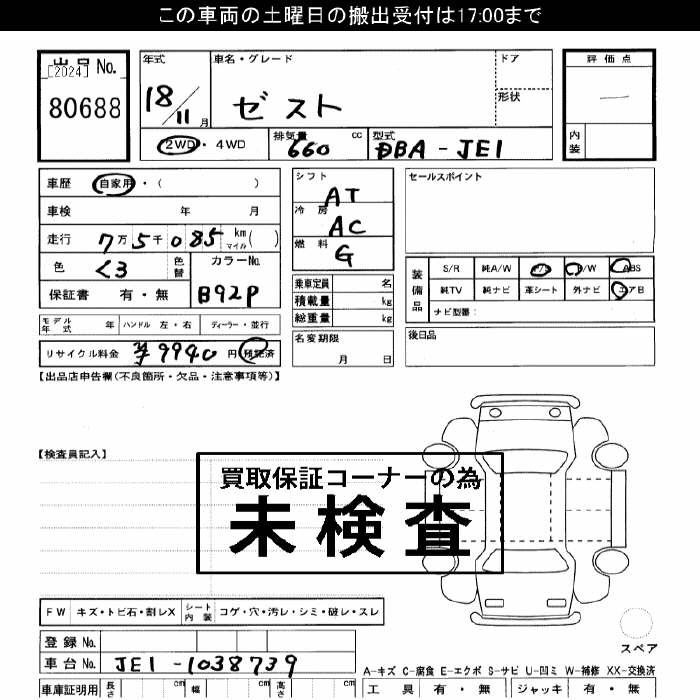 この車両の土曜日の搬出受付は17:00まで
出品 No. [2024]
80688
年式 18/11月
車名・グレード ゼスト
ドア
形状
評価点 —
内装
2WD・4WD
排気量 660 cc
型式 DBA-JE1
車歴 自家用・( )
車検 年 月
走行 7万5千085 km マイル( )
色 くろ 色替 カラーNo. B92P
保証書 有・無
モデル年式 年 ハンドル 左・右 ディーラー・並行
リサイクル料金 ¥9940 円 預託済
シフト AT
冷房 AC
燃料 G
乗車定員 名
積載量 kg
総重量 kg
名変期限 月 日
セールスポイント
装備品 S/R 純A/W P/S P/W ABS
純TV 純ナビ 革シート 外ナビ エアB
ナビ型番:
後日品
【出品店申告欄(不良箇所・欠品・注意事項等)】
【検査員記入】
買取保証コーナーの為
未検査
FW キズ・トビ石・割レX シート内装 コゲ・穴・汚レ・シミ・破レ・スレ
登録 No.
車台 No. JE1-1038739
スペア
A-キズ C-腐食 E-エクボ S-サビ U-凹ミ W-補修 XX-交換済
車庫証明用 長さ cm 幅 cm 高さ cm
工具 有・無 ジャッキ 有・無